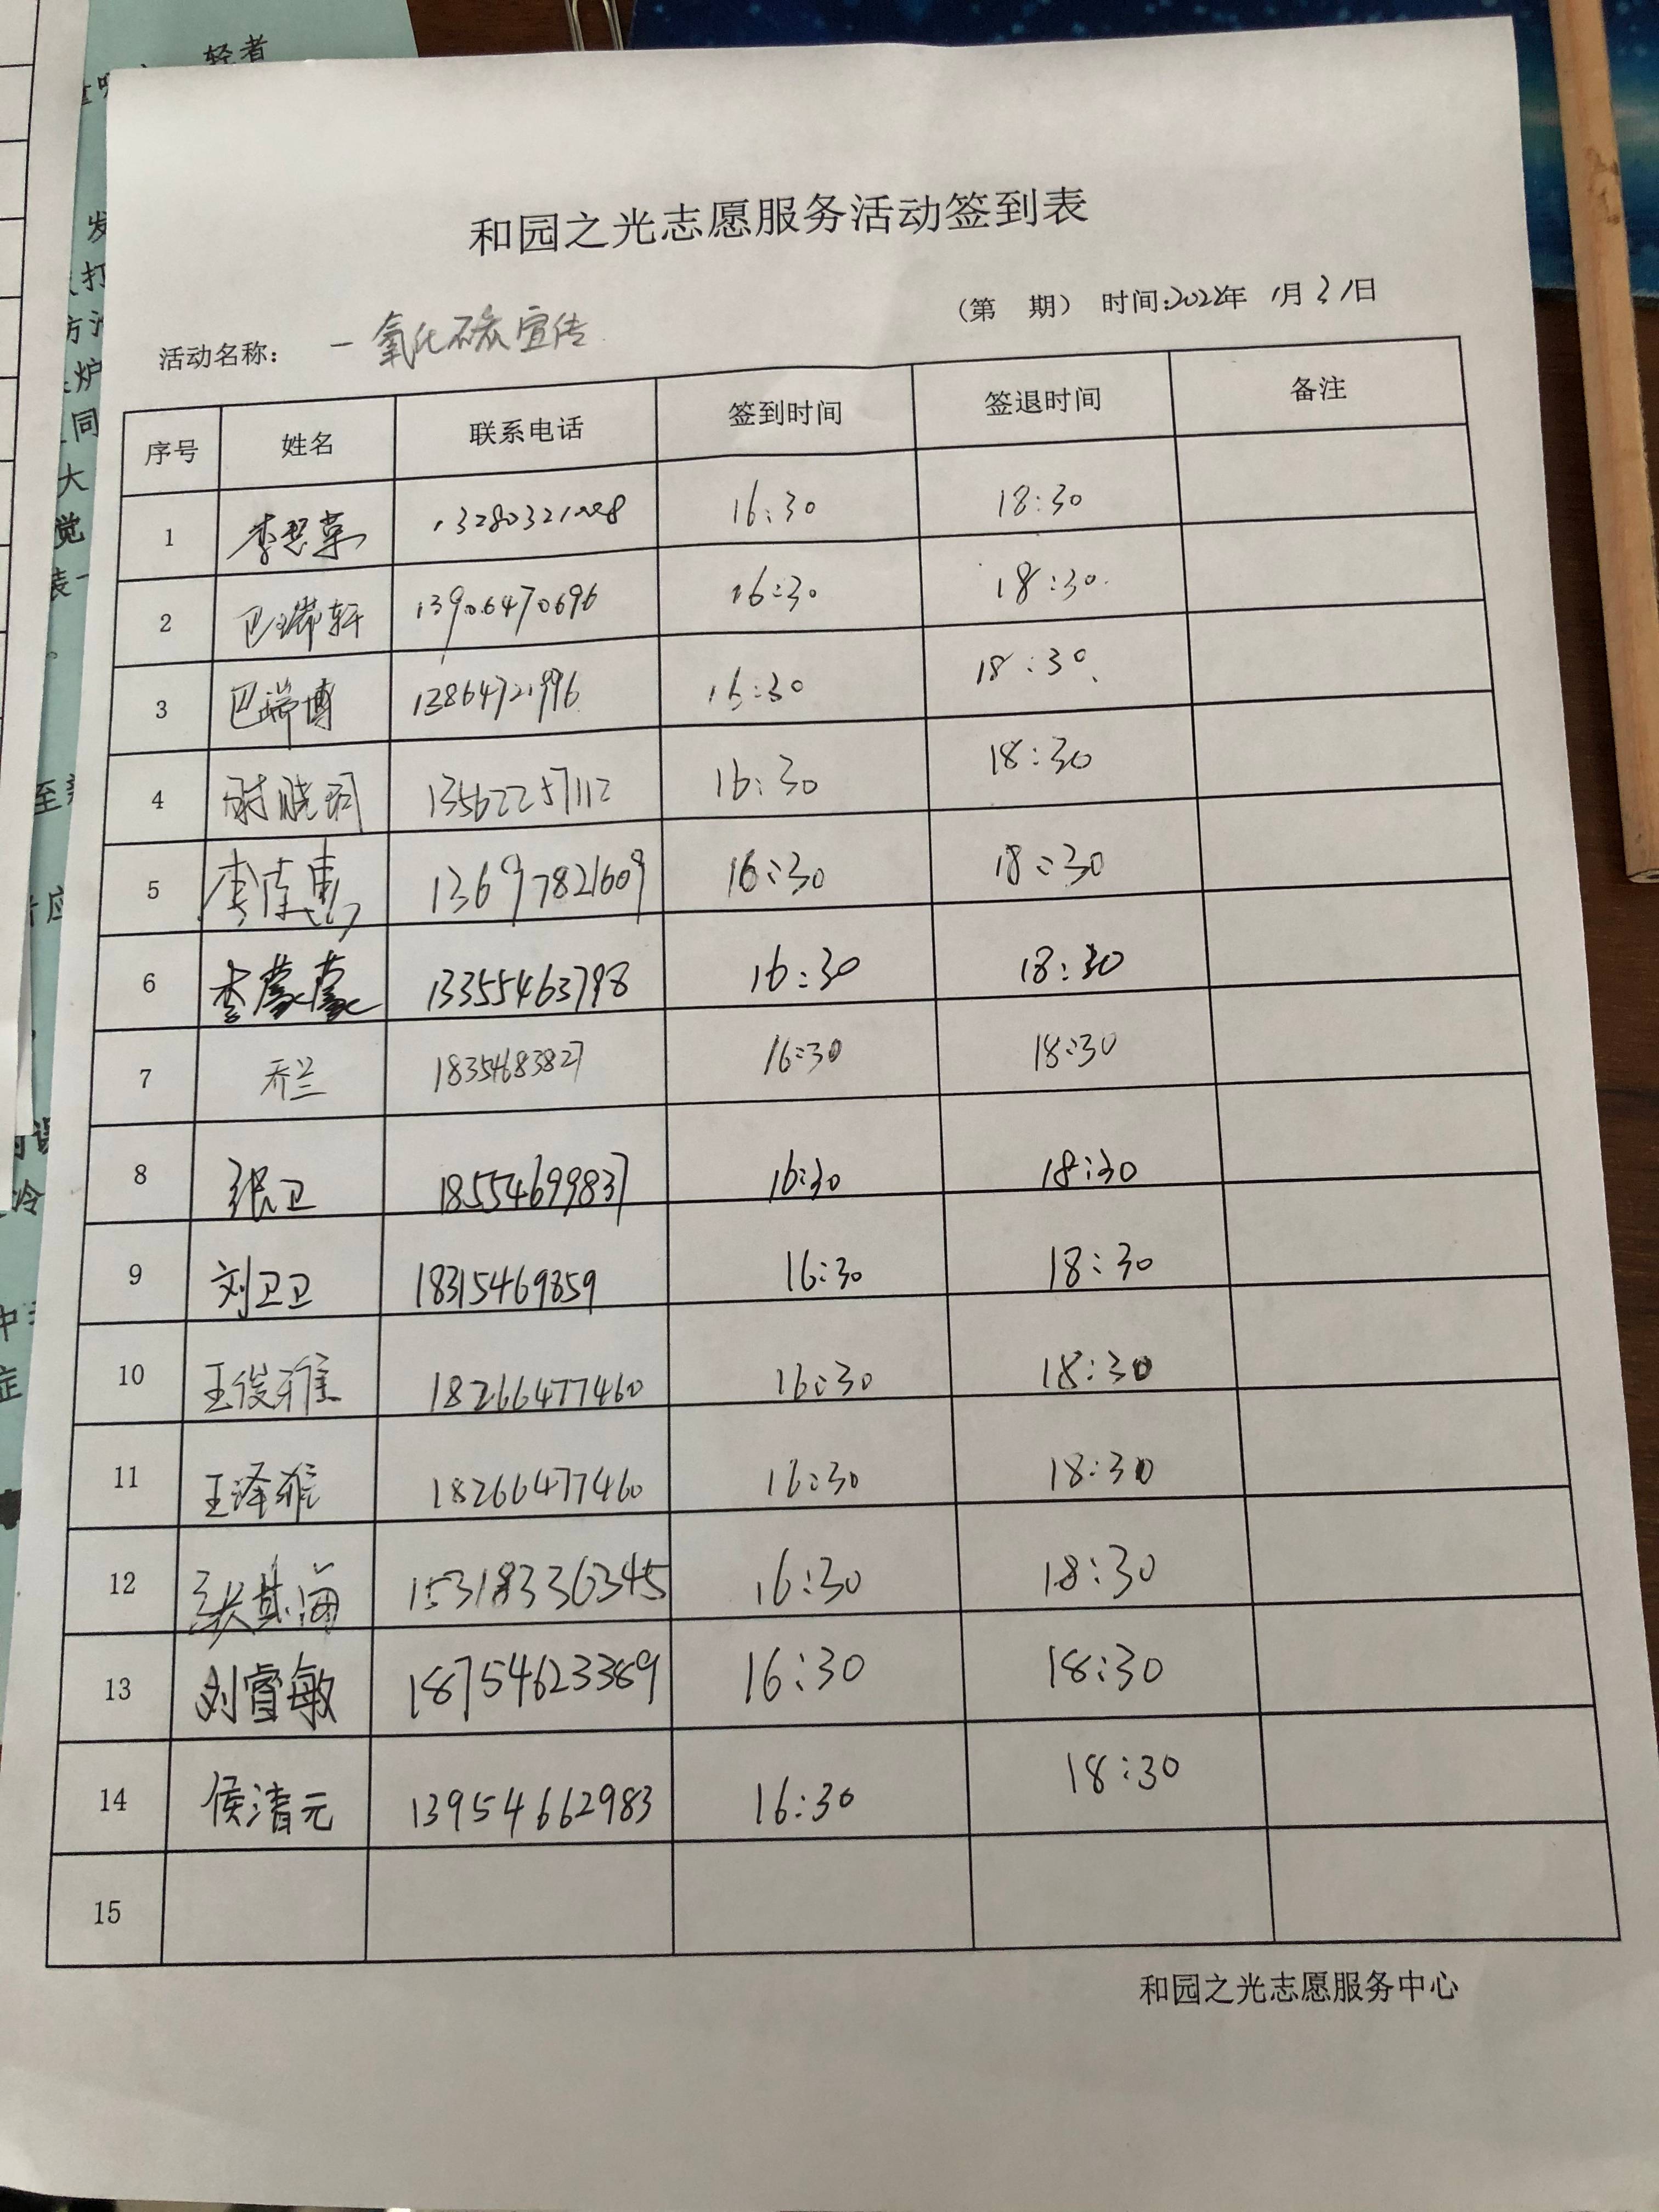 轻者
发
打
炉
同
大
觉
至
应
冷
中
症
和园之光志愿服务活动签到表
(第 期) 时间:2022年 1月21日
活动名称: 一氧化碳宣传
序号 姓名 联系电话 签到时间 签退时间 备注
1 16:30 18:30
2 巴瑞轩 13906470696 16:30 18:30
3 巴瑞博 13864721996 16:30 18:30
4 13562257112 16:30 18:30
5 李南惠 13697821609 16:30 18:30
6 李蒙蒙 13355463798 16:30 18:30
7 乔兰 18354683827 16:30 18:30
8 张卫 18554699837 16:30 18:30
9 刘卫卫 18315469859 16:30 18:30
10 王俊雅 18266477460 16:30 18:30
11 王泽雅 18266477460 16:30 18:30
12 张其海 15318336345 16:30 18:30
13 刘睿敏 18754623389 16:30 18:30
14 侯清元 13954662983 16:30 18:30
15
和园之光志愿服务中心